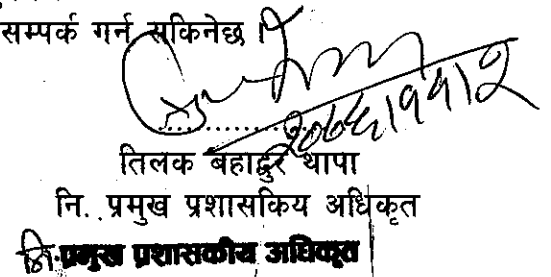 सम्पर्क गर्न सकिनेछ ।
तिलक बहादुर थापा
नि. प्रमुख प्रशासकिय अधिकृत
नि. प्रमुख प्रशासकीय अधिकृत